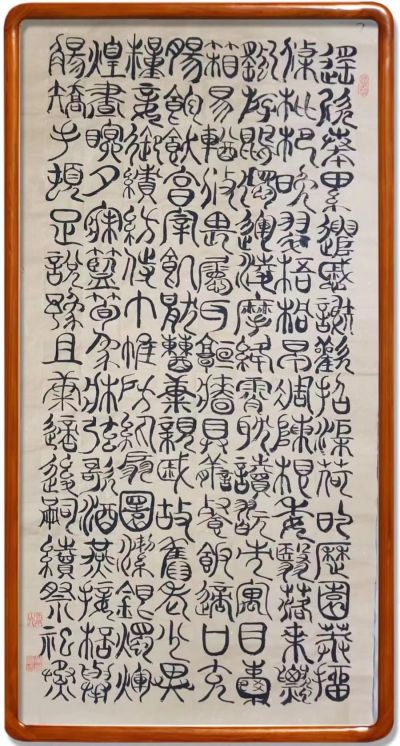 遙欣奏累遣慼謝歡招渠荷的歷園莽抽
條枇杷晚翠梧桐早凋陳根委翳落葉飄
颻遊鵾獨運凌摩絳霄耽讀翫市寓目囊
箱易輶攸畏屬耳垣牆具膳餐飯適口充
腸飽飫烹宰飢厭糟糠親戚故舊老少異
糧妾御績紡侍巾帷房紈扇圓潔銀燭煒
煌晝眠夕寐藍筍象床弦歌酒宴接杯舉
觴矯手頓足悅豫且康嫡後嗣續祭祀烝